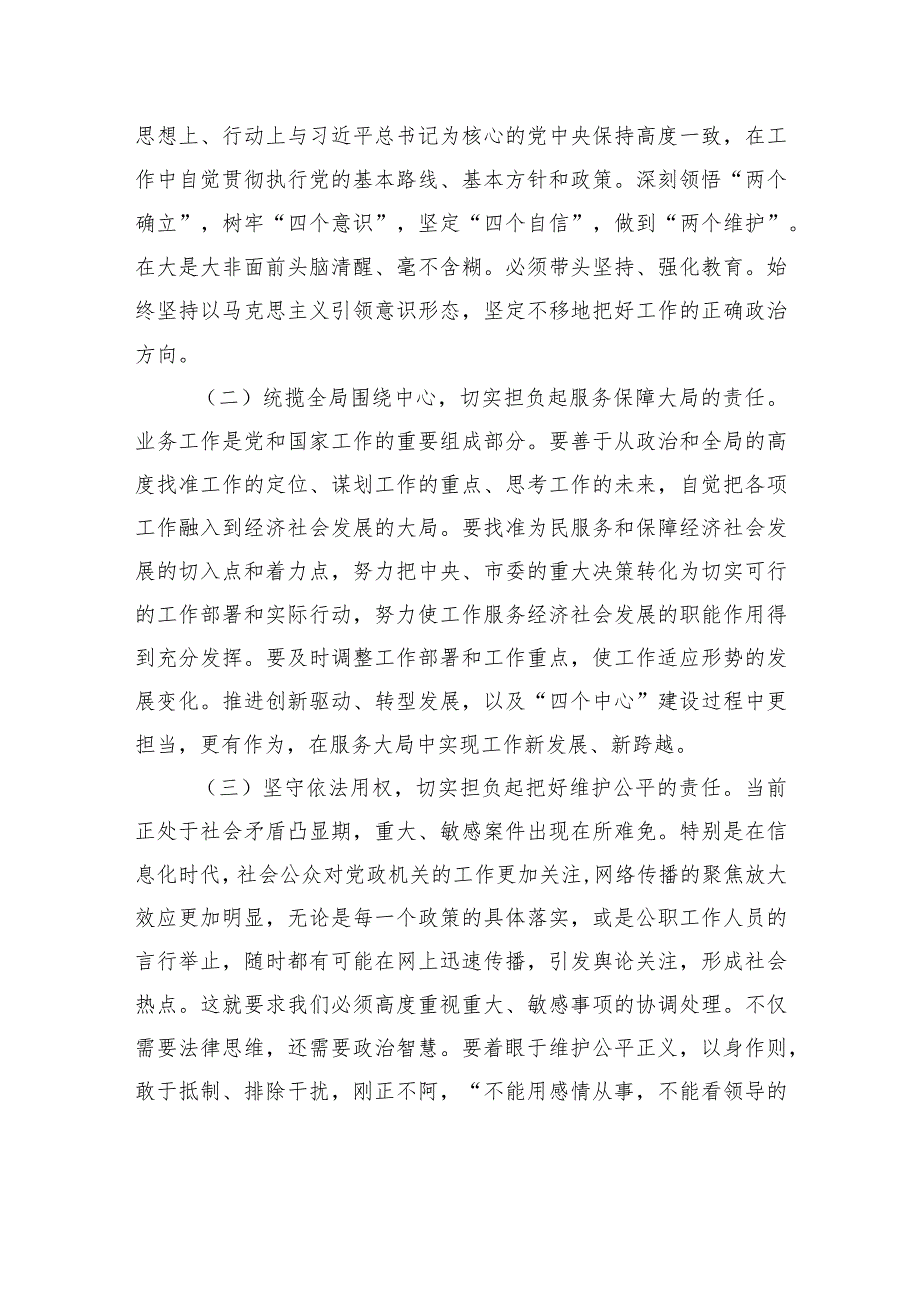 思想上、行动上与习近平总书记为核心的党中央保持高度一致，在工
作中自觉贯彻执行党的基本路线、基本方针和政策。深刻领悟“两个
确立”，树牢“四个意识”，坚定“四个自信”，做到“两个维护”。
在大是大非面前头脑清醒、毫不含糊。必须带头坚持、强化教育。始
终坚持以马克思主义引领意识形态，坚定不移地把好工作的正确政治
方向。
（二）统揽全局围绕中心，切实担负起服务保障大局的责任。
业务工作是党和国家工作的重要组成部分。要善于从政治和全局的高
度找准工作的定位、谋划工作的重点、思考工作的未来，自觉把各项
工作融入到经济社会发展的大局。要找准为民服务和保障经济社会发
展的切入点和着力点，努力把中央、市委的重大决策转化为切实可行
的工作部署和实际行动，努力使工作服务经济社会发展的职能作用得
到充分发挥。要及时调整工作部署和工作重点，使工作适应形势的发
展变化。推进创新驱动、转型发展，以及“四个中心”建设过程中更
担当，更有作为，在服务大局中实现工作新发展、新跨越。
（三）坚守依法用权，切实担负起把好维护公平的责任。当前
正处于社会矛盾凸显期，重大、敏感案件出现在所难免。特别是在信
息化时代，社会公众对党政机关的工作更加关注,网络传播的聚焦放大
效应更加明显，无论是每一个政策的具体落实，或是公职工作人员的
言行举止，随时都有可能在网上迅速传播，引发舆论关注，形成社会
热点。这就要求我们必须高度重视重大、敏感事项的协调处理。不仅
需要法律思维，还需要政治智慧。要着眼于维护公平正义，以身作则，
敢于抵制、排除干扰，刚正不阿，“不能用感情从事，不能看领导的